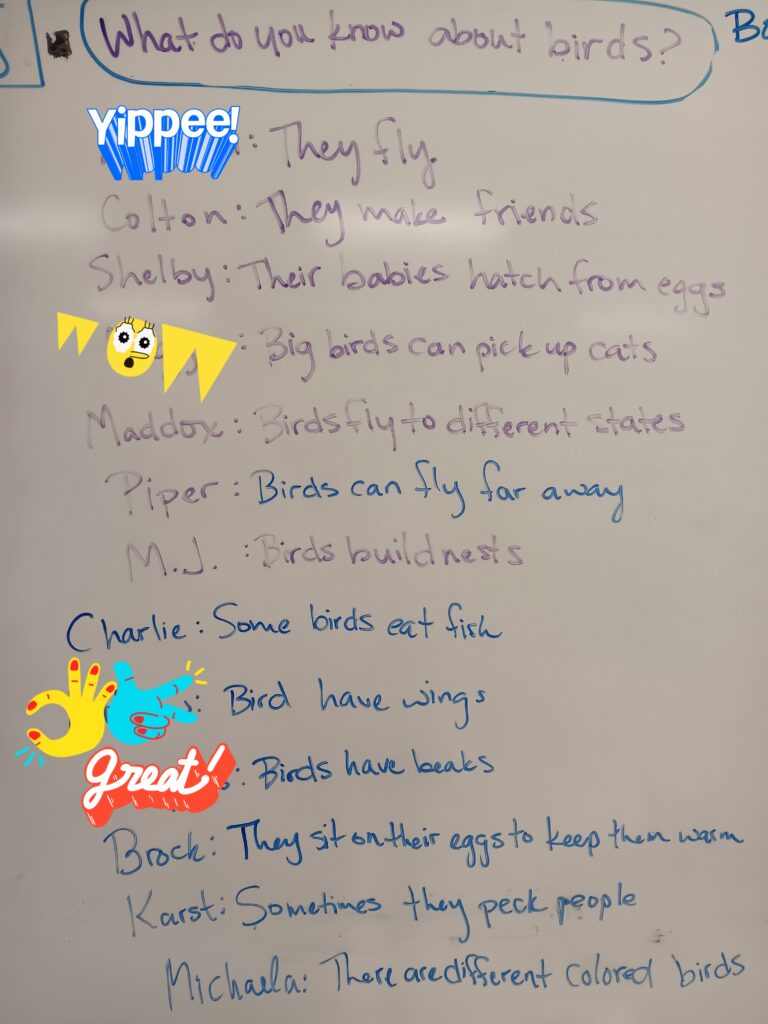 What do you know about birds?
Yippee! : They fly.
Colton: They make friends
Shelby: Their babies hatch from eggs
WOW : Big birds can pick up cats
Maddox: Birds fly to different states
Piper: Birds can fly far away
M.J. : Birds build nests
Charlie: Some birds eat fish
: Bird have wings
great! : Birds have beaks
Brock: They sit on their eggs to keep them warm
Karst: Sometimes they peck people
Michaela: There are different colored birds